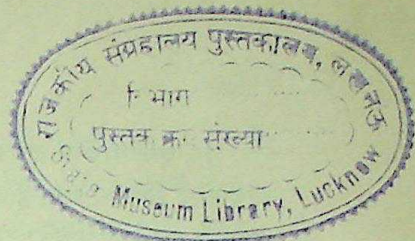 राजकीय संग्रहालय पुस्तकालय, लखनऊ
विभाग
पुस्तक क्र० संख्या
State Museum Library, Lucknow